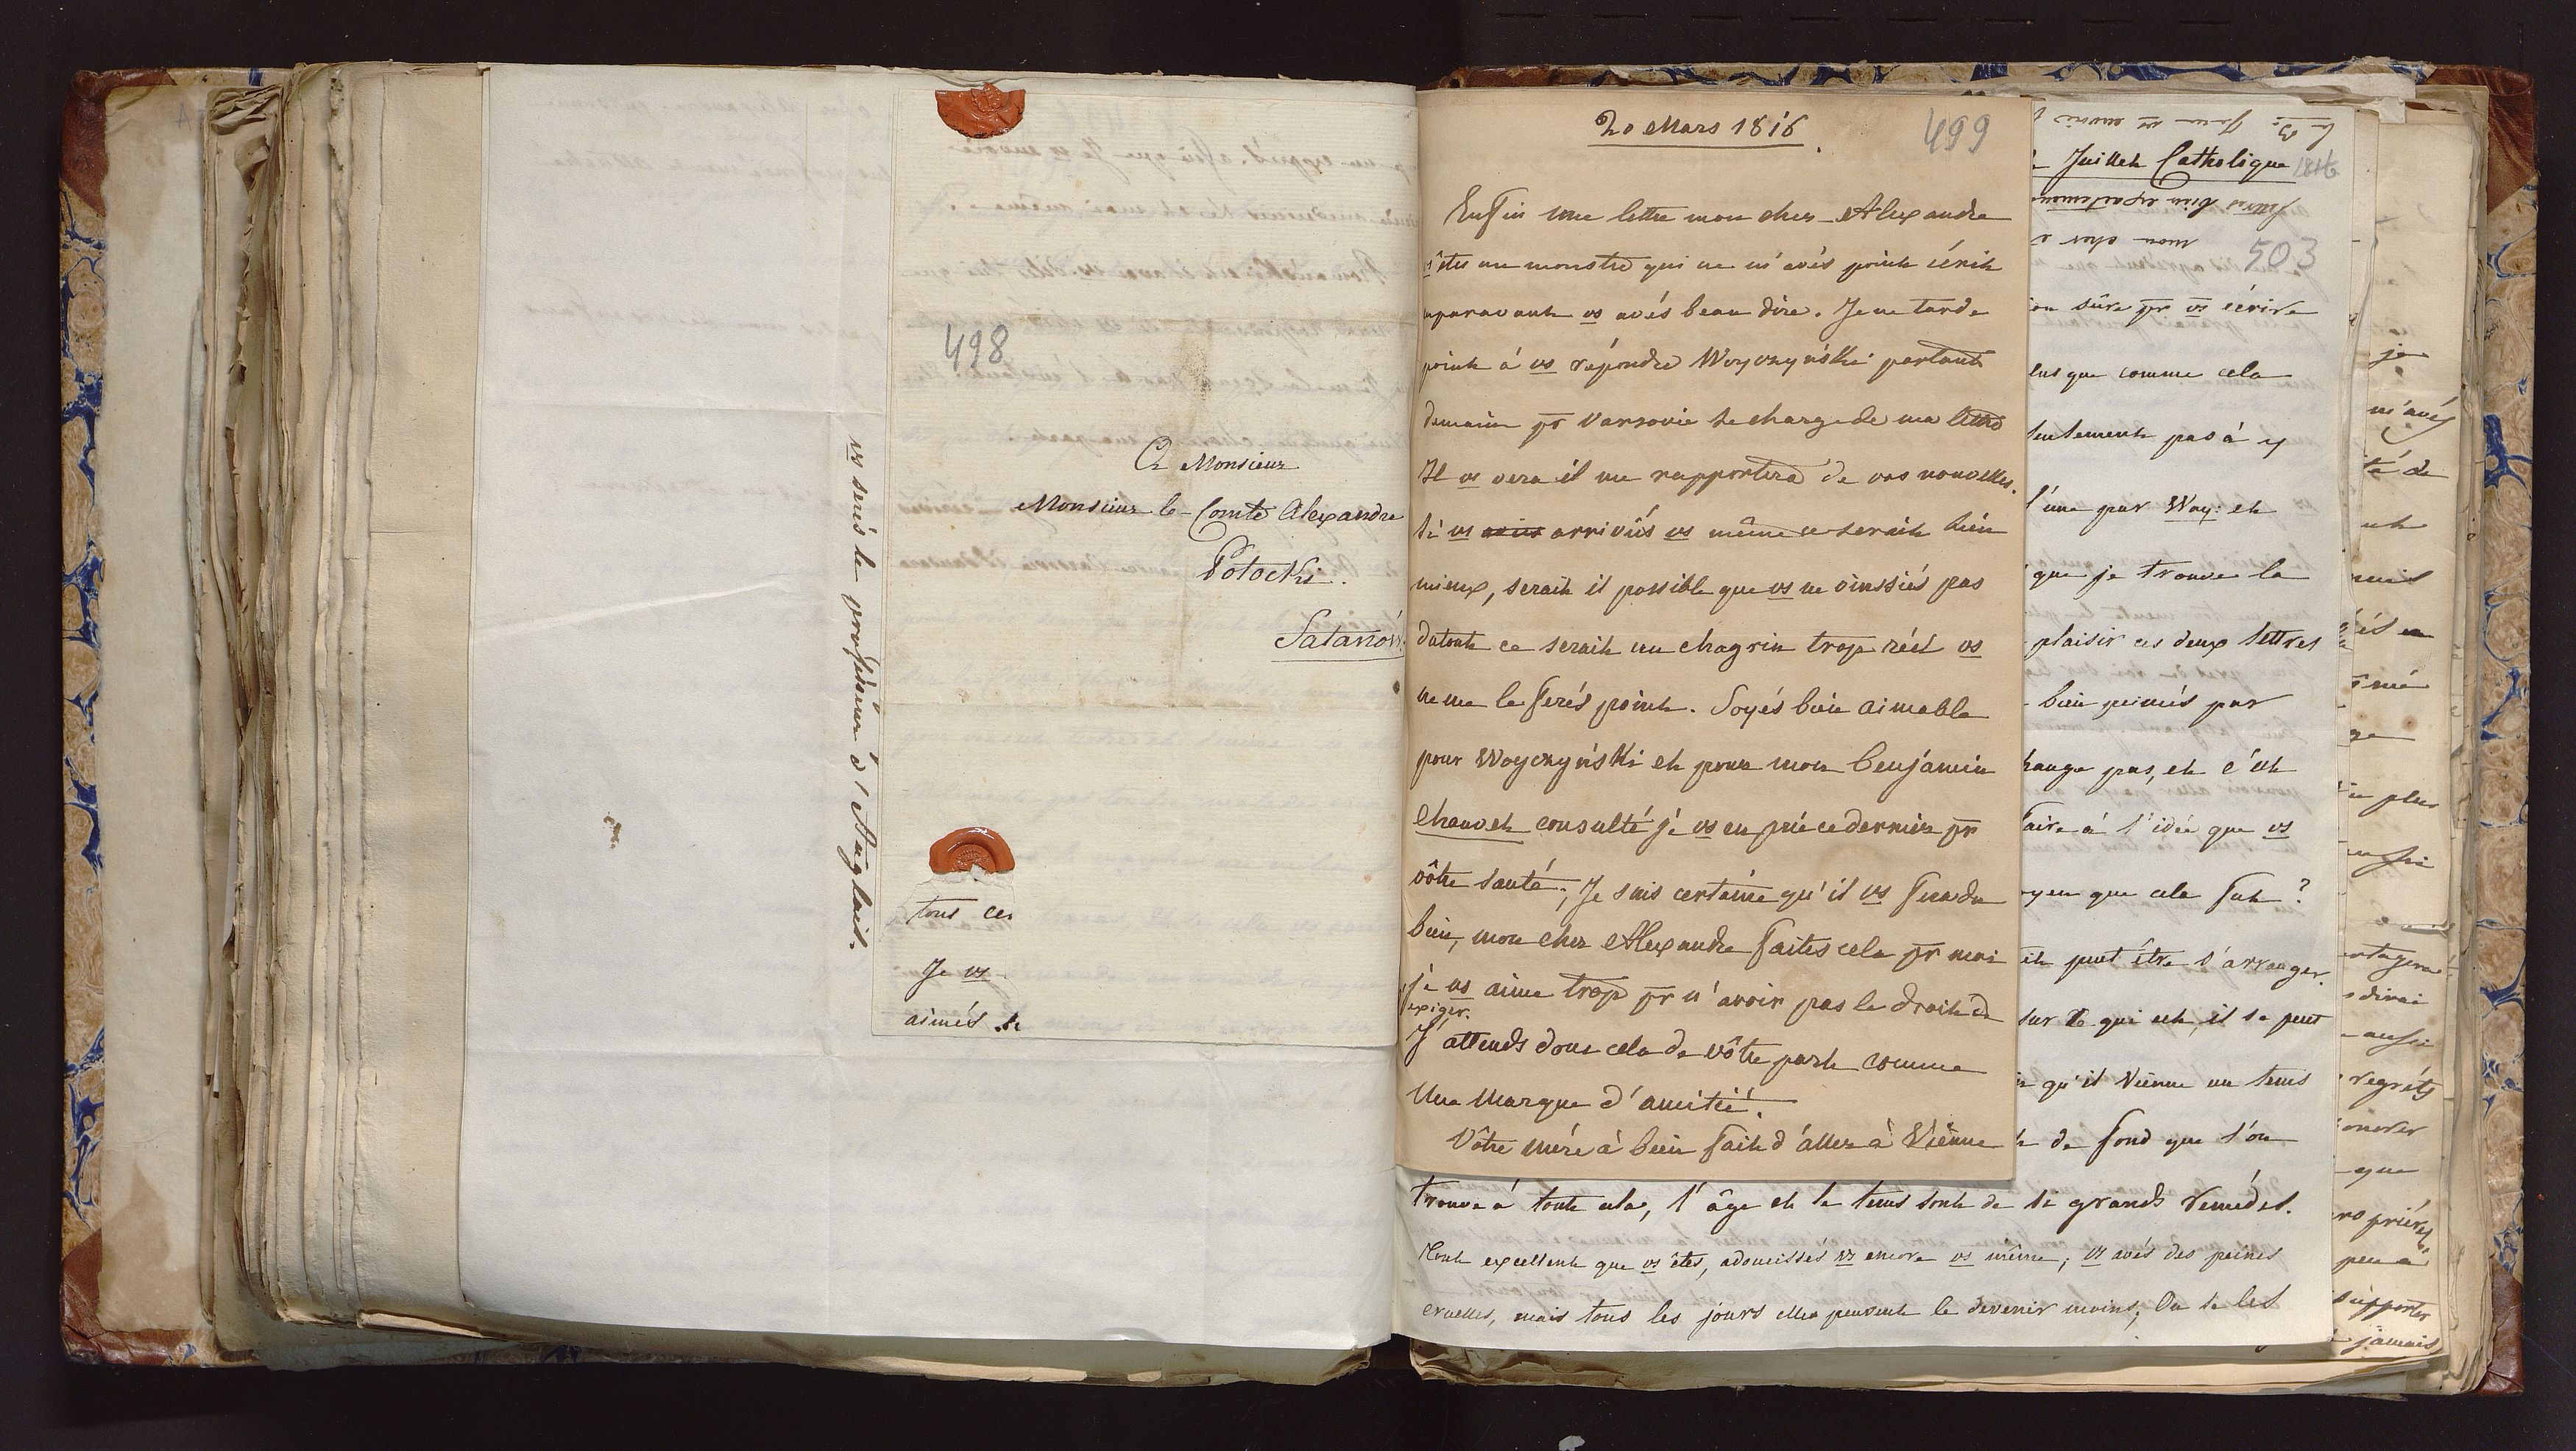 498
A Monsieur
Monsieur le Comte Alexandre
Potocki.
Satanów
vs serés le professeur d'Anglais.
tous ces
Je vs
aimés
20 Mars 1816
499
Enfin une lettre mon cher Alexandre
êtes un monstre qui ne m'avés point écrit
auparavant vs avés beau dire. Je ne tarde
point à vs répondre Woyczyński partant
demain pr Varsovie se charge de ma lettre
Il vs vera il me rapportera de vos nouvelles.
si vs arriviés vs même ce serait bien
mieux, serait il possible que vs ne vinssiés pas
dutout ce serait un chagrin trop réel vs
ne me le ferés point. Soyés bien aimable
pour Woyczyński et pour mon benjamin
Chauvet consulté je vs en prie ce dernier pr
vôtre santé; Je suis certaine qu'il vs fera du
bien, mon cher Alexandre faites cela pr moi
je vs aime trop pr n'avoir pas le droit de
l'exiger.
J'attends donc cela de vôtre part comme
une marque d'amitié.
Vôtre mére à bien fait d'aller à Viénne
Juillet Catholique 1816
mon cher
503
sûre pr vs écrire
que comme cela
seulement pas à y
l'une par Woy: et
que je trouve la
plaisir ces deux lettres
bien peinés par
change pas, et c'est
faire à l'idée que vs
moyen que cela fut?
peut être s'arranger.
sur ce qui est, il se peut
qu'il viénne un tems
de fond que l'on
trouve à tout cela, l'âge et le tems sont de si grands remédes.
Tout excellent que vs êtes, adoucissés vs encore vs même; vs avés des peines
cruelles, mais tous les jours elles peuvent le devenir moins; On se les
je
m'avés
té de
plus
aussi
partagera
dirai
aussi
regréts
que
priéres
peu à
supporter
jamais